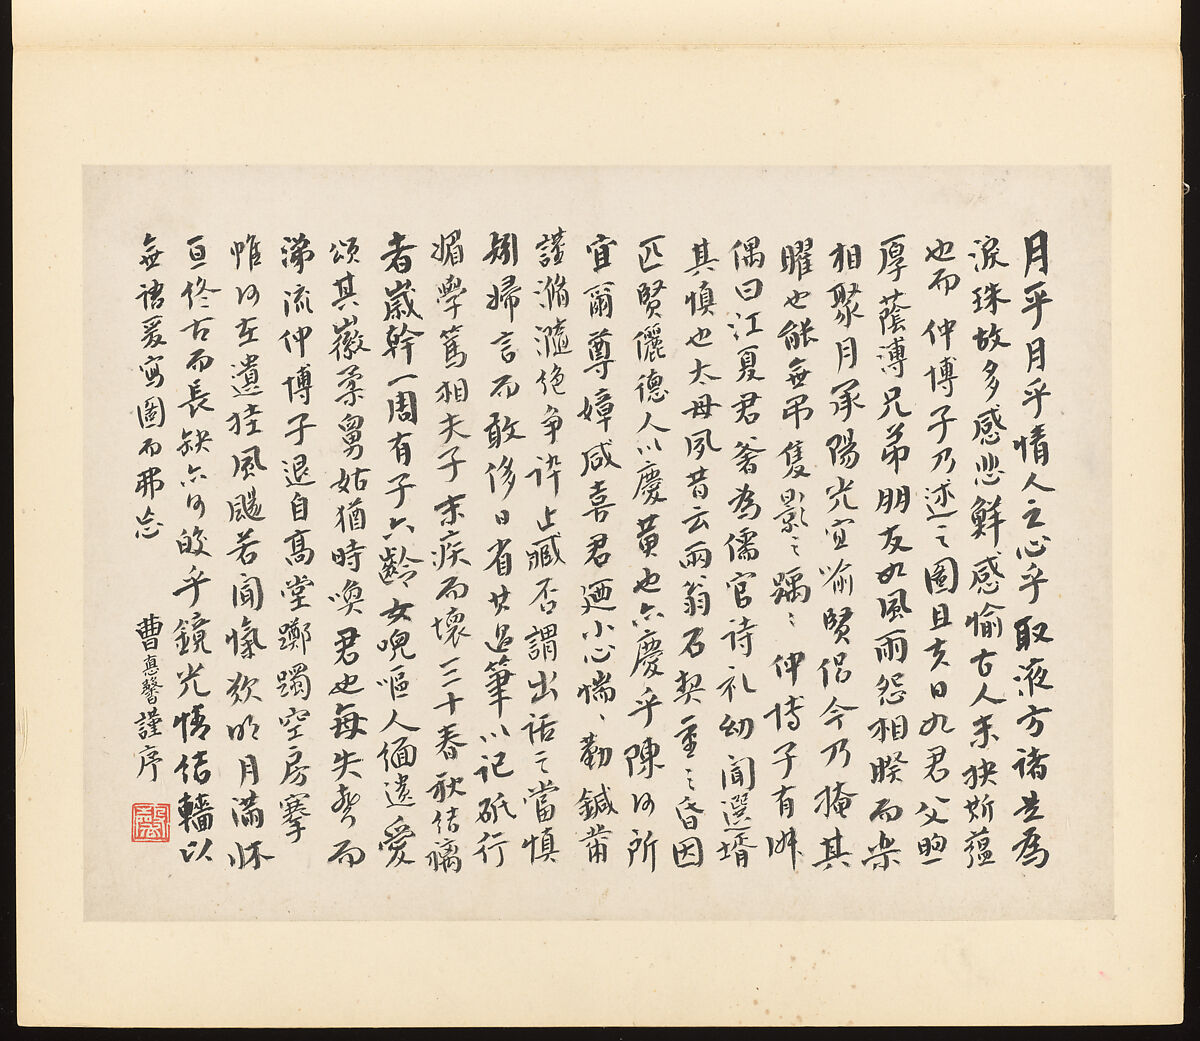 月乎月乎情人之心乎取液方諸是為
淚珠故多感悲鮮感愉古人未抉斯蘊
也而仲博子乃述之圖且夫日如君父煦
厚蔭溥兄弟朋友如風雨怨相睽而樂
相聚月承陽光宜喻賢侶今乃掩其
曜也能無弔隻影之踽踽仲博子有
偶曰江夏君為儒官詩礼幼聞選壻
其慎也太母夙昔云兩翁石契重之昏因
匹賢儷德人以慶黃也亦慶乎陳何所
宜爾尊嫜咸喜君廼小心惴惴勤鍼黹
謹滫瀡絶爭誶止臧否謂出話之當慎
矧婦言而敢侈日省其過筆以記砥行
媚學篤相夫子末疾而壞三十春秋結褵
者歲幹一周有子六齡女唲嘔人緬遺愛
頌其徽柔舅姑猶時喚君也每失聲而
涕流仲博子退自高堂躑躅空房搴
帷何在遺挂風颺若聞愾欷明月滿怀
亘終古而長缺亦何皎乎鏡光情結轖以
無語爰寫圖而弗忘
曹惪馨謹序